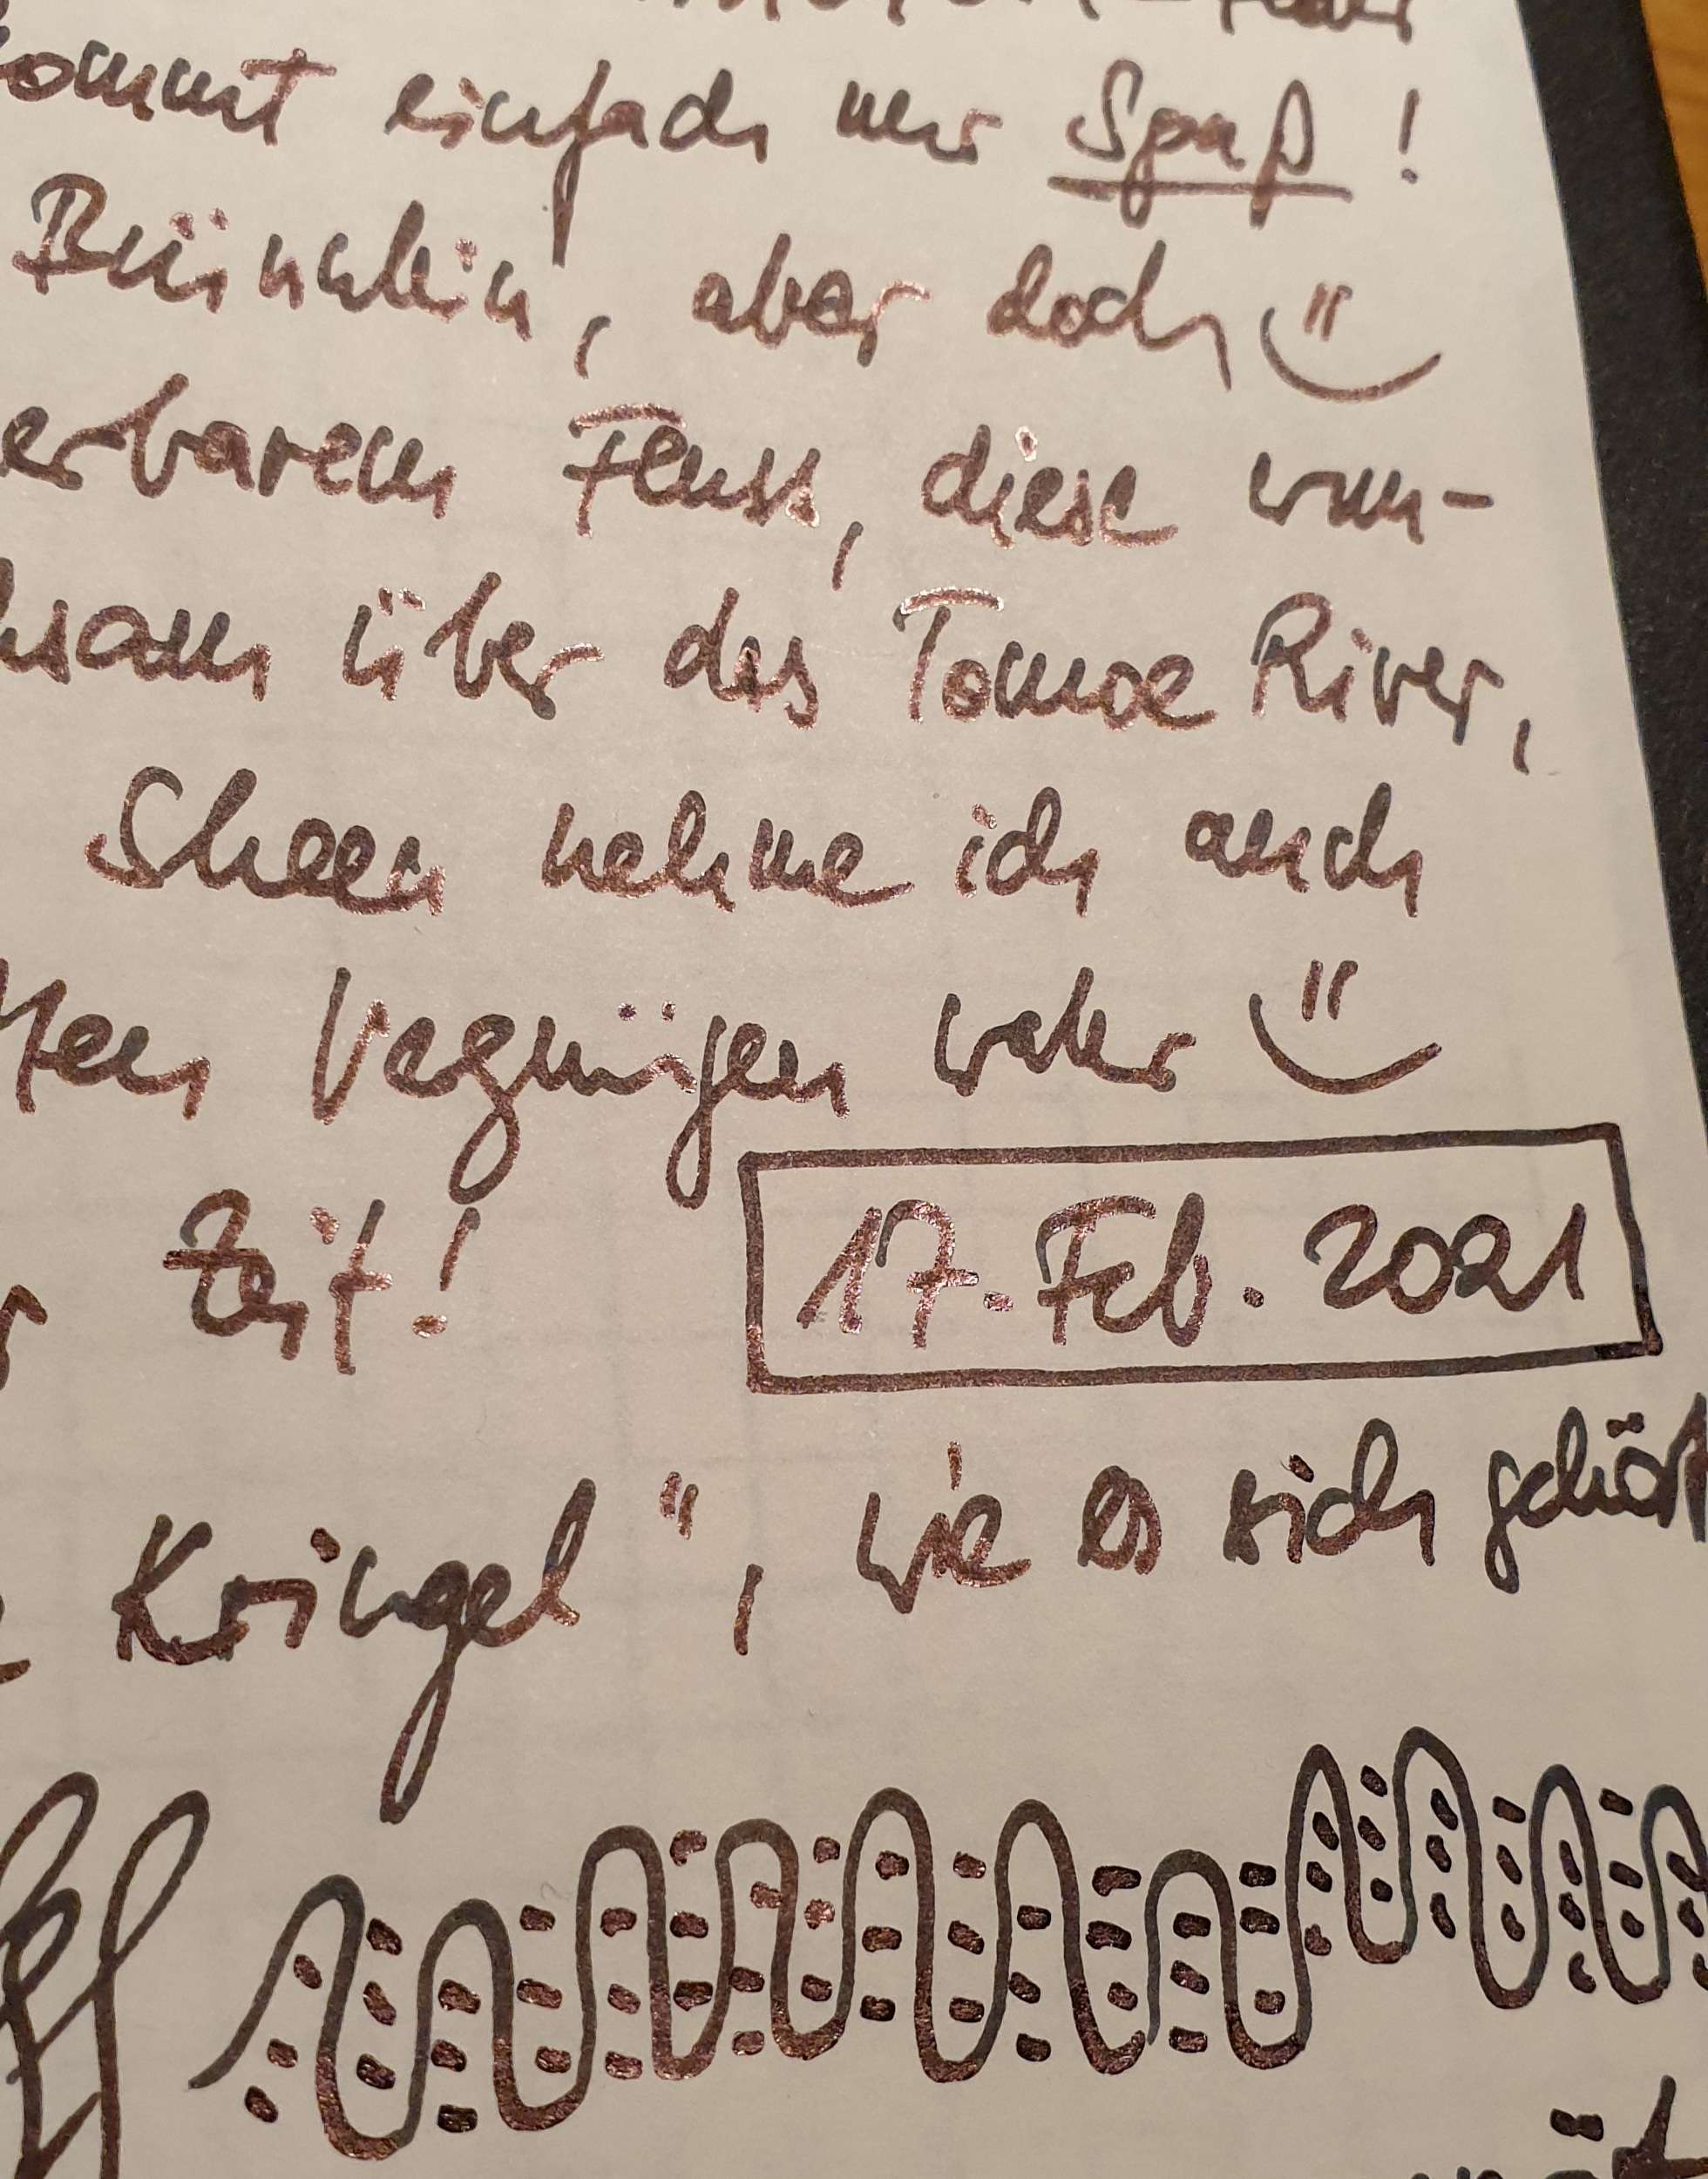 ommt einfach nur Spaß !
Bäuchlein, aber doch
erbarem Fluss, diese wun-
sam über das Tomoe River,
Sheen nehme ich auch
ten Vegnügen wahr
Zeit!
17. Feb. 2021
Kringel“, wie es sich gehört